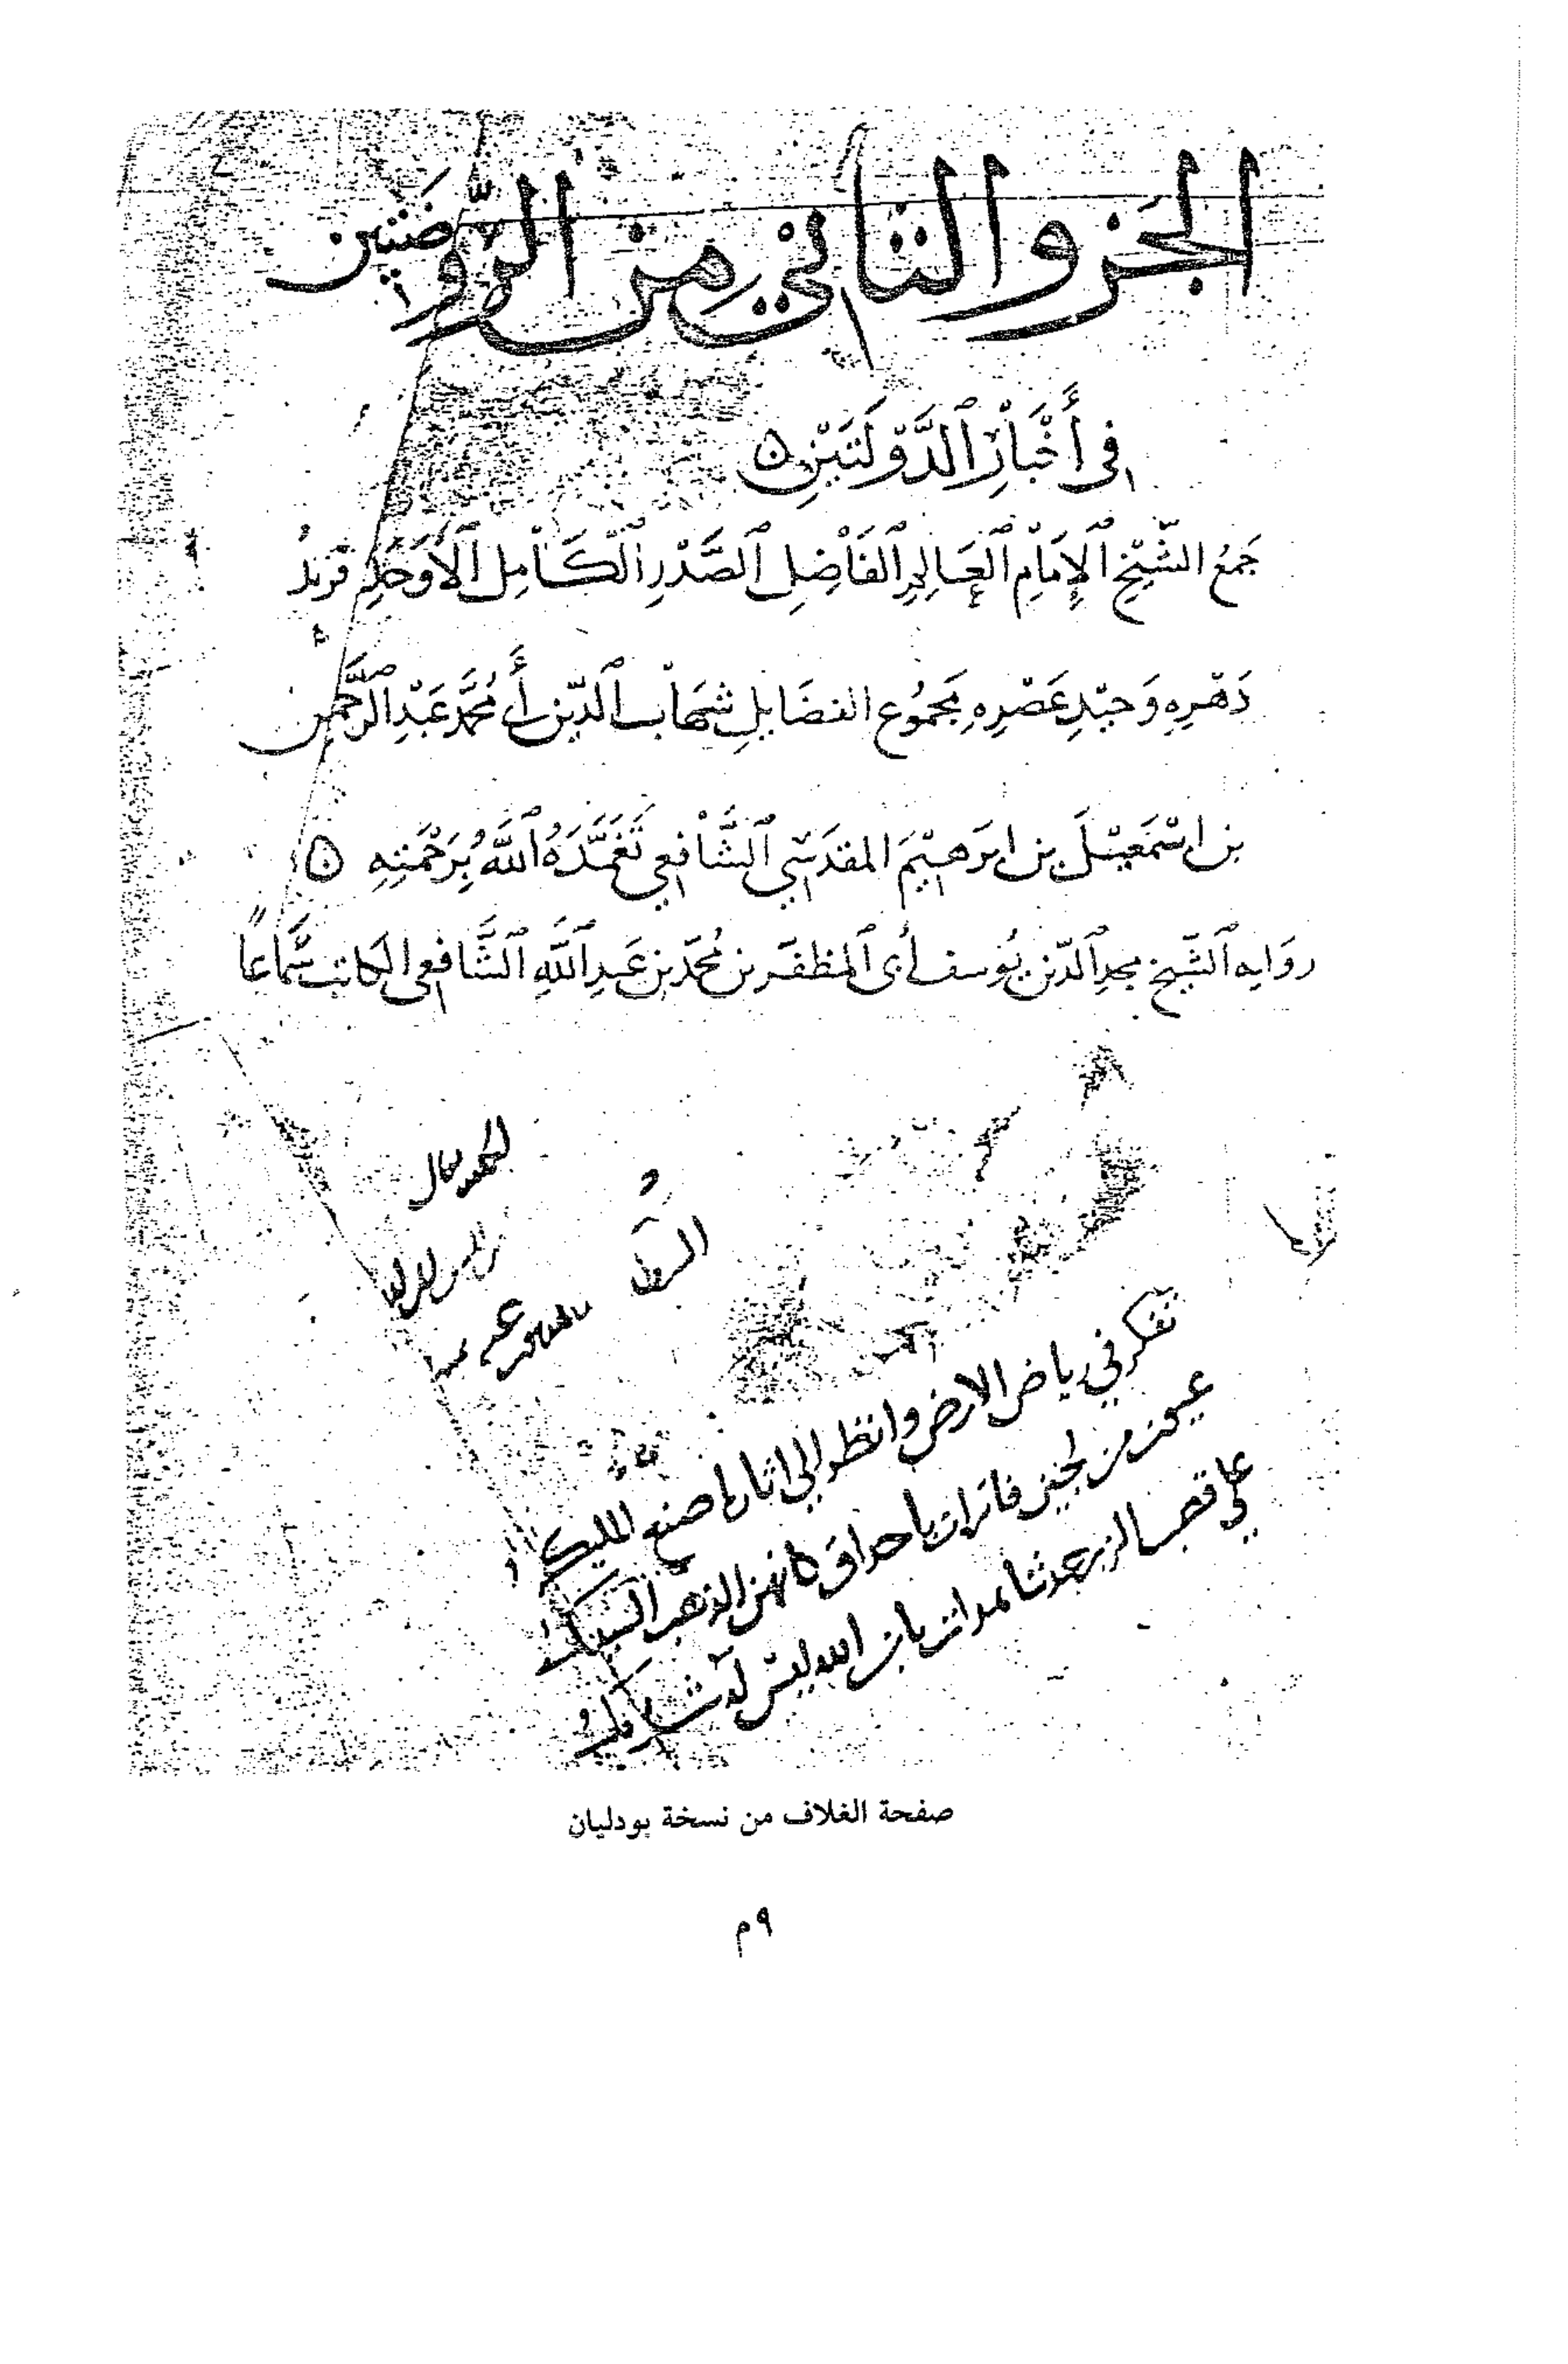 الجزو الثاني من الرَّوضَتين
في أَخْبَارِ ٱلدَّوْلَتَيْنِ ۞
جَمْعُ الشَّيْخِ ٱلإِمَامِ ٱلْعَالِمِ ٱلفَاضِلِ ٱلصَّدْرِ ٱلْكَامِلِ ٱلأَوْحَدِ فَرِيدُ
دَهْرِهِ وَحِيْدِ عَصْرِهِ مَجْمُوع الفضَايلِ شِهَابِ ٱلدّين أَبِي مُحَمَّد عَبْدِ ٱلرَّحمن
بن اسْمَعِيْلَ بن ابرَهِيْمَ المقدَسِي ٱلشَّافِعي تَغَمَّدَهُ ٱللَّهُ بِرَحْمَتِهِ ۞
روَايه ٱلشّيخ مجدِ ٱلدّين يُوسف أبى ٱلمظفَّر بن مُحمّد بن عَبدِ ٱللَّهِ ٱلشَّافِعى الكاتب سَمَاعاً
تفكر في رياض الارض وانظر الى اثار ما صنع المليك
عيون من لجين فاترات باحداق كانهن الذهب السبيك
على قضب الزبرجد شاهدات بان الله ليس له شريك
صفحة الغلاف من نسخة بودليان
٩م